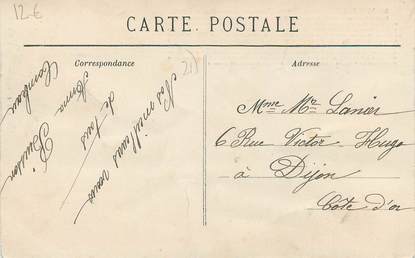 12 €
CARTE POSTALE
Correspondance
Adresse
Nos meilleurs vœux
de tous
Anna
Buisson
Mme Mr Lanier
6 Rue Victor Hugo
à Dijon
Côte d'or